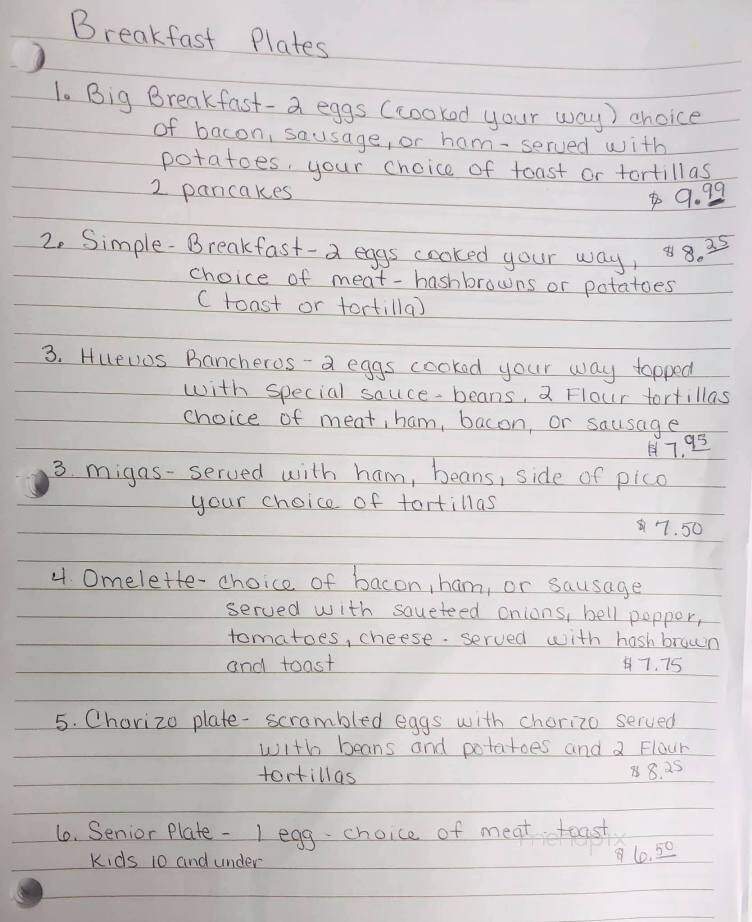 Breakfast Plates
1. Big Breakfast- 2 eggs (cooked your way) choice
of bacon, sausage, or ham - served with
potatoes. your choice of toast or tortillas
2 pancakes $ 9.99
2. Simple - Breakfast - 2 eggs cooked your way, $ 8.25
choice of meat - hashbrowns or potatoes
( toast or tortilla)
3. Huevos Rancheros - 2 eggs cooked your way topped
with special sauce - beans, 2 Flour tortillas
choice of meat, ham, bacon, or sausage
$ 7.95
3. migas - served with ham, beans, side of pico
your choice of tortillas
$ 7.50
4. Omelette- choice of bacon, ham, or sausage
served with saueteed onions, bell pepper,
tomatoes, cheese. served with hash brown
and toast $ 7.75
5. Chorizo plate - scrambled eggs with chorizo served
with beans and potatoes and 2 Flour
tortillas $ 8.25
6. Senior Plate - 1 egg - choice of meat - toast
Kids 10 and under $ 6.50
menupix